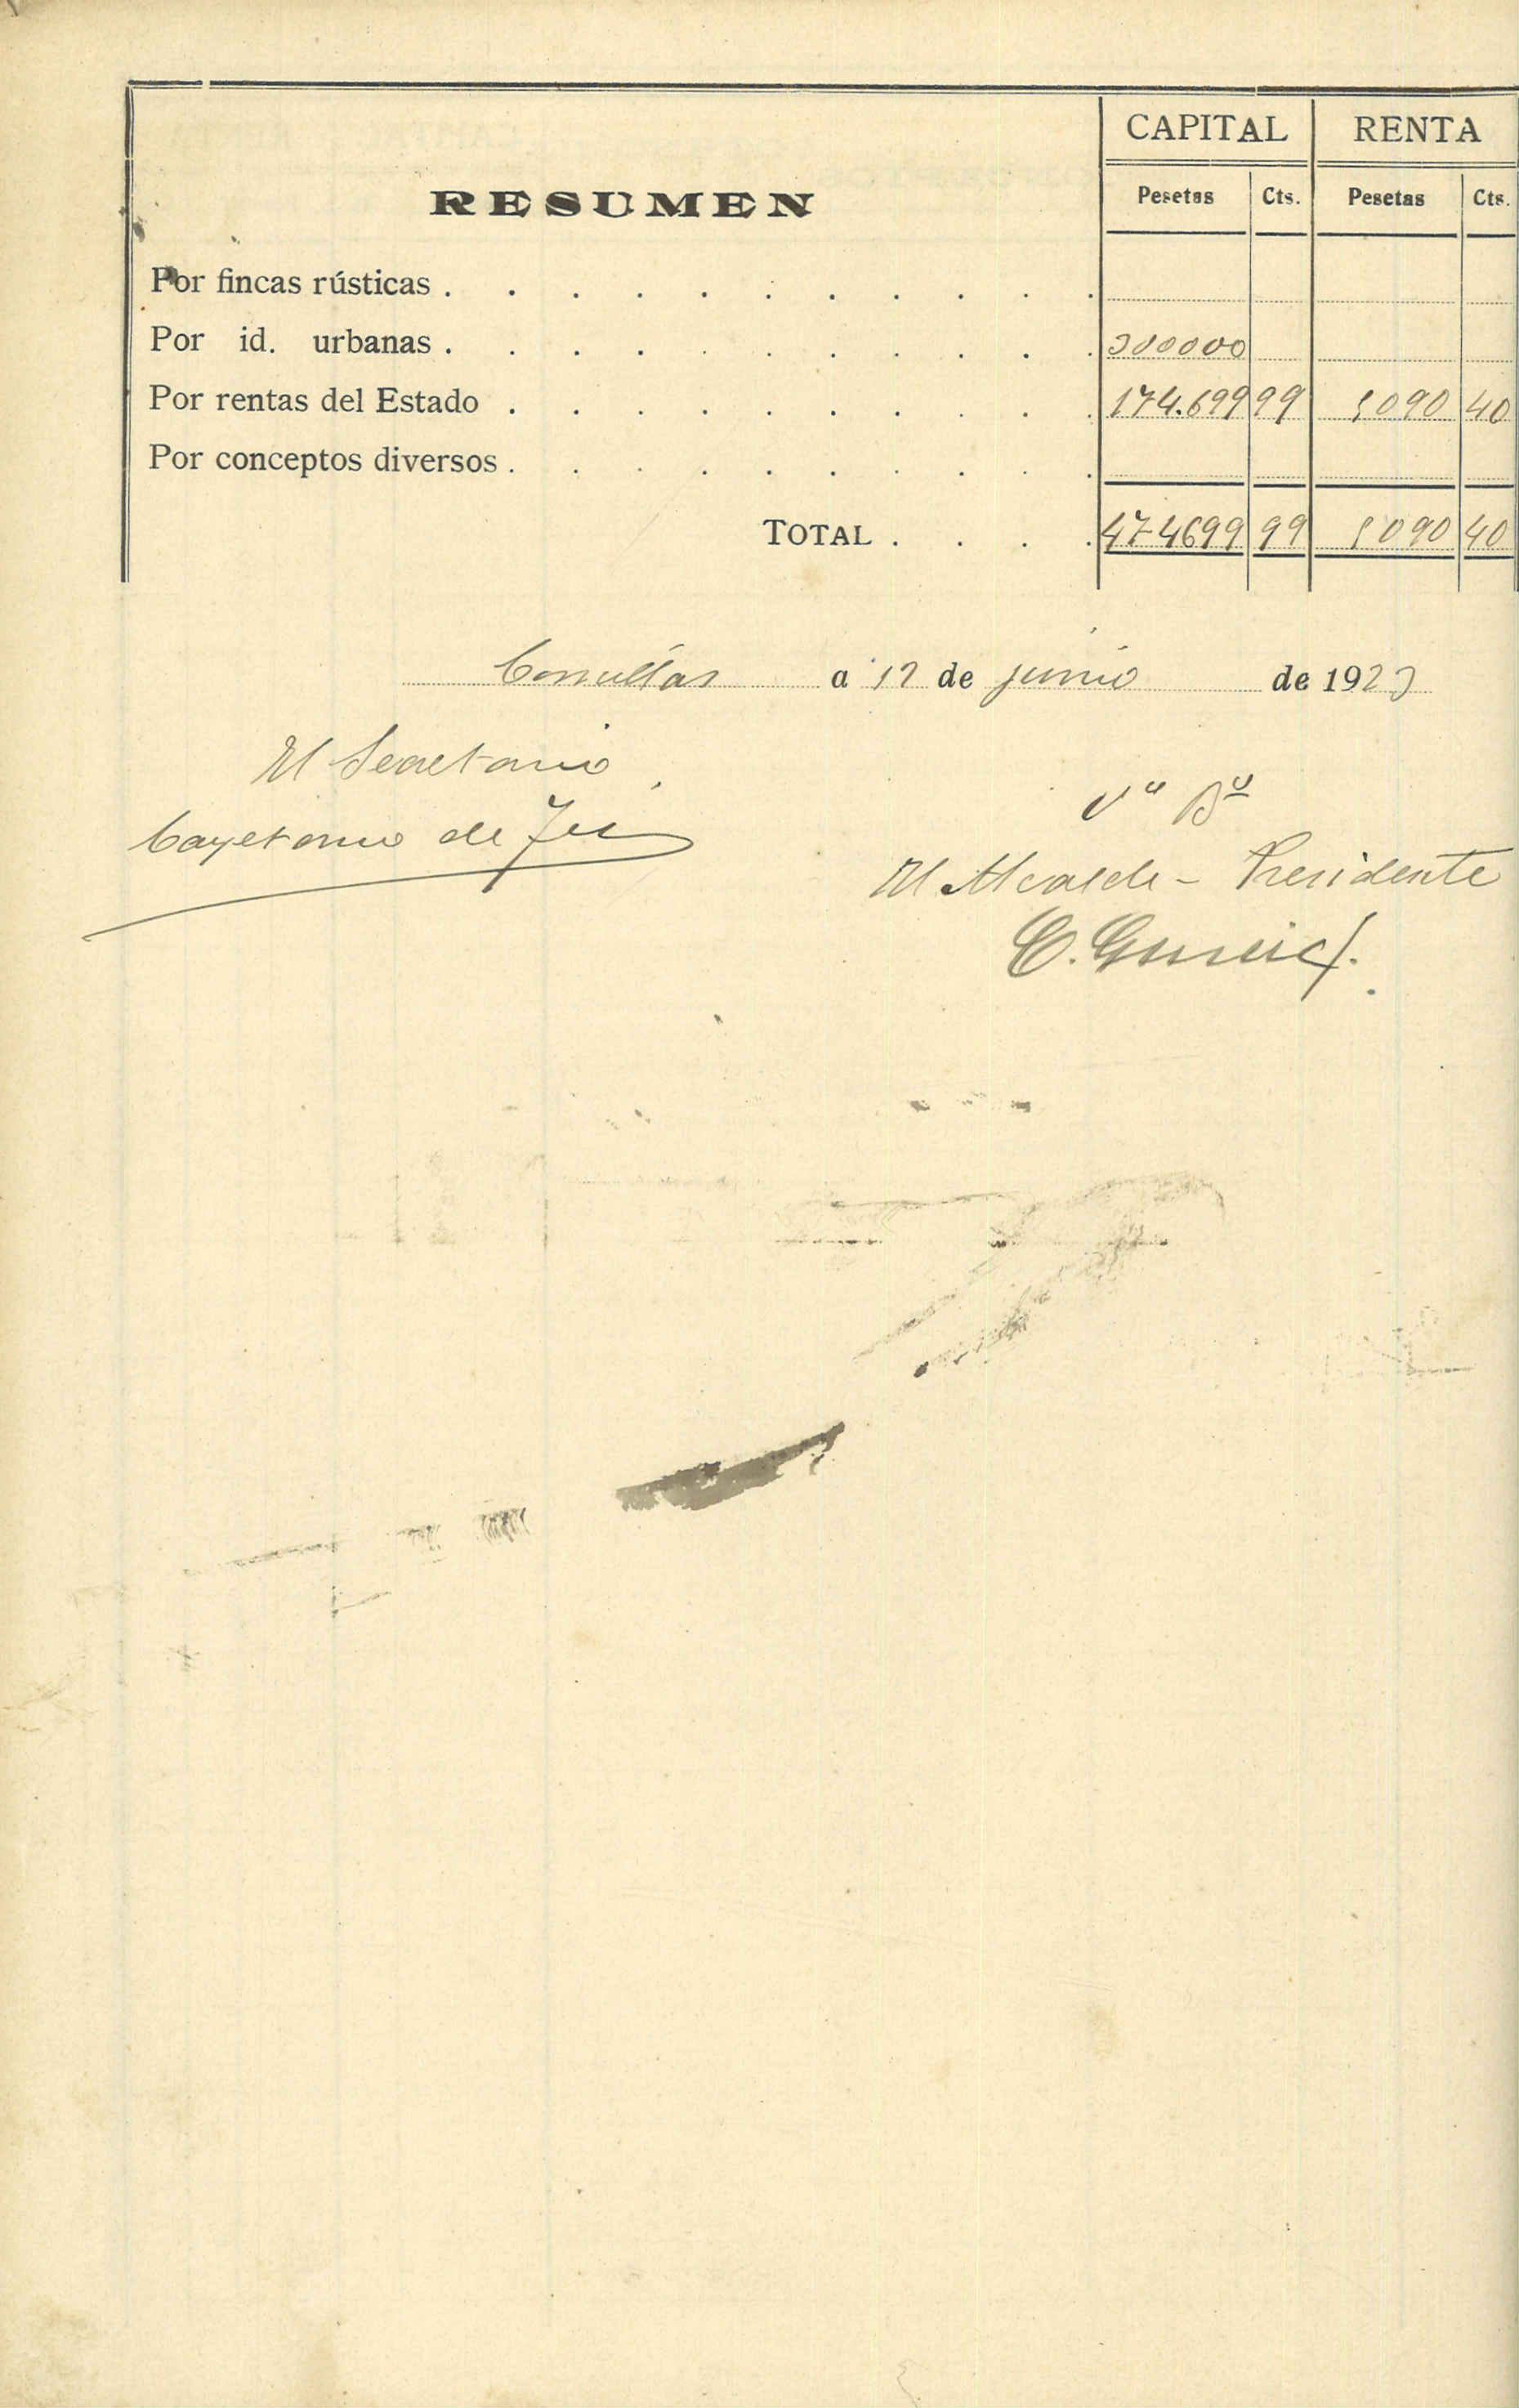 CAPITAL RENTA
Pesetas Cts. Pesetas Cts.
RESUMEN
Por fincas rústicas
Por id. urbanas 300000
Por rentas del Estado 174.699 99 5090 40
Por conceptos diversos
TOTAL 474699 99 5090 40
Comillas a 12 de junio de 1923
El Secretario
Cayetano de
Vº Bº
El Alcalde - Presidente